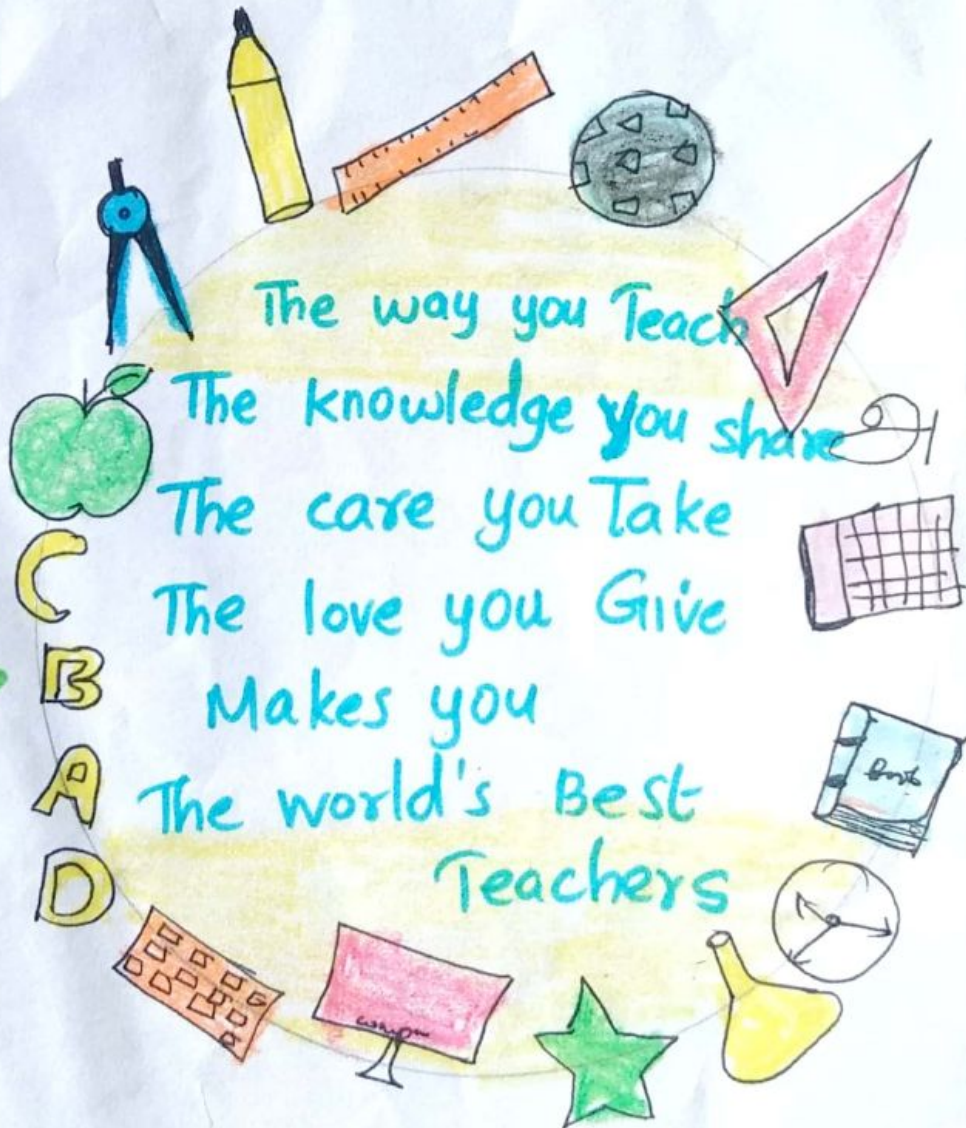 The way you Teach
The knowledge you share
The care you Take
The love you Give
Makes you
The world's Best
Teachers
C
B
A
D
அ
Book